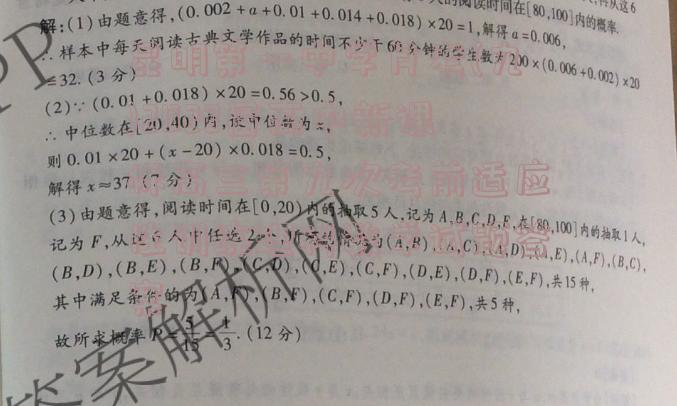 人的阅读时间在[80,100]内的概率.
解:(1)由题意得,(0.002+a+0.01+0.014+0.018)×20=1,解得a=0.006,
∴样本中每天阅读古典文学作品的时间不少于60分钟的学生数为200×(0.006+0.002)×20
=32.(3分)
(2)∵(0.01+0.018)×20=0.56>0.5,
∴中位数在[20,40)内,设中位数为x,
则0.01×20+(x-20)×0.018=0.5,
解得x≈37.(7分)
(3)由题意得,阅读时间在[0,20)内的抽取5人,记为A,B,C,D,E,在[80,100]内的抽取1人,
记为F,从这6人中任选2人,所有的情况为(A,B),(A,C),(A,D),(A,E),(A,F),(B,C),
(B,D),(B,E),(B,F),(C,D),(C,E),(C,F),(D,E),(D,F),(E,F),共15种,
其中满足条件的为(A,F),(B,F),(C,F),(D,F),(E,F),共5种,
故所求概率P=5/15=1/3.(12分)
答案解析网